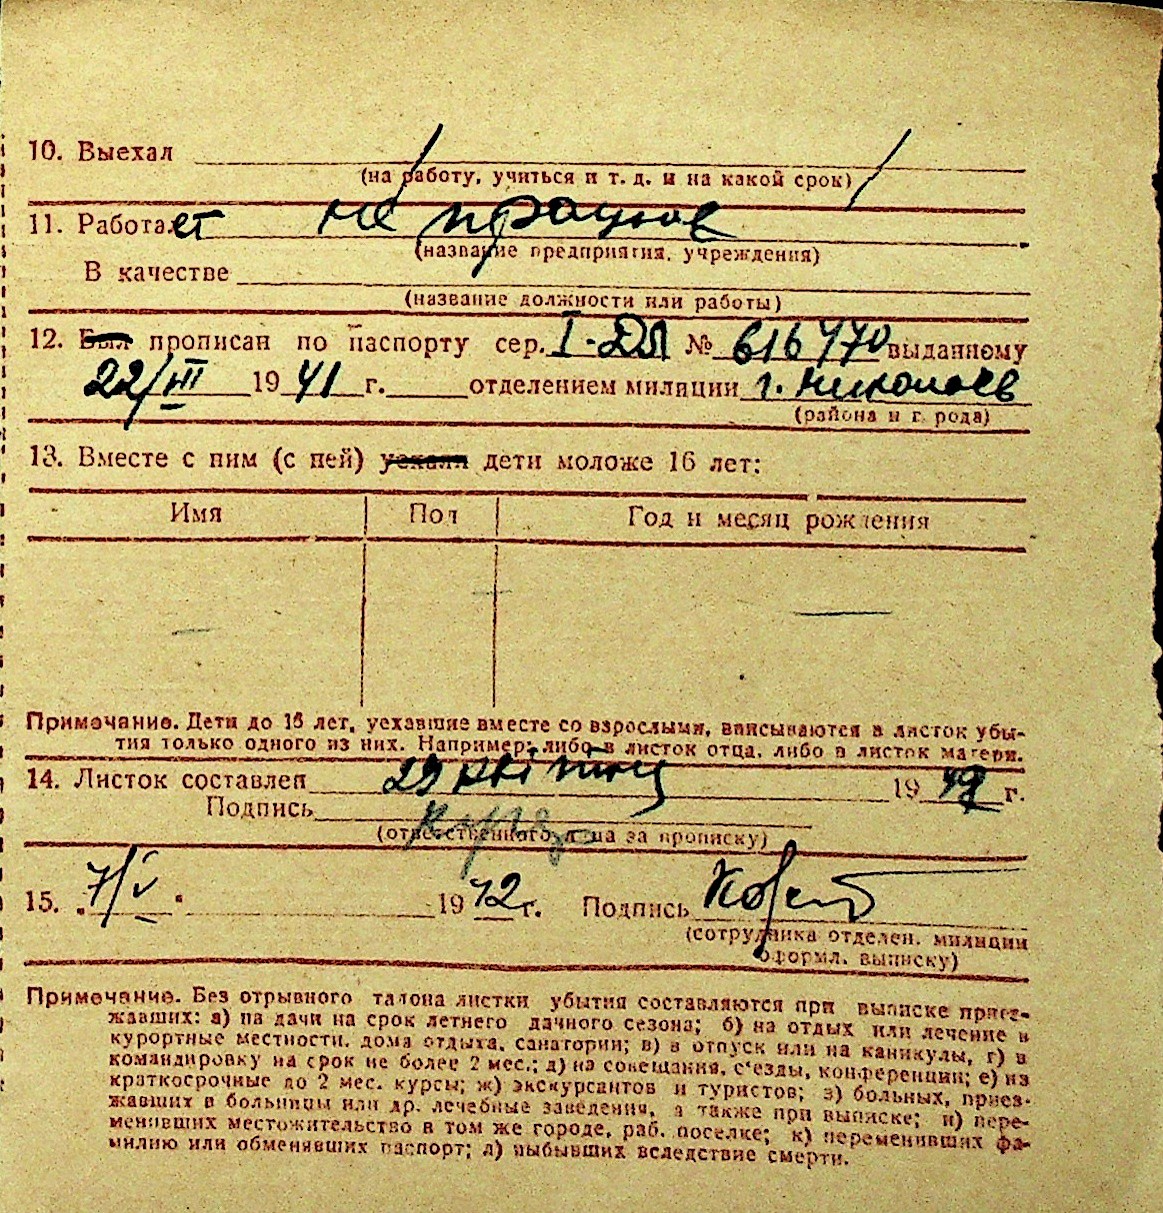 10. Выехал
(на работу, учиться и т. д. и на какой срок)
11. Работает не працює
(название предприятия, учреждения)
В качестве
(название должности или работы)
12. Был прописан по паспорту сер. I-ДЛ № 616770 выданному
22/III 1941 г. отделением милиции г. Николаев
(района и г. рода)
13. Вместе с ним (с ней) уехали дети моложе 16 лет:
Имя Пол Год и месяц рождения
Примечание. Дети до 16 лет, уехавшие вместе со взрослыми, вписываются в листок убы-
тия только одного из них. Например: либо в листок отца, либо в листок матери.
14. Листок составлен 29 квітня 1942 г.
Подпись
(ответственного лица за прописку)
15. 7/V 1942 г. Подпись
(сотрудника отделен. милиции
оформл. выписку)
Примечание. Без отрывного талона листки убытия составляются при выписке приез-
жавших: а) на дачи на срок летнего дачного сезона; б) на отдых или лечение в
курортные местности, дома отдыха, санатории; в) в отпуск или на каникулы, г) в
командировку на срок не более 2 мес.; д) на совещания, с'езды, конференции; е) на
краткосрочные до 2 мес. курсы; ж) экскурсантов и туристов; з) больных, приез-
жавших в больницы или др. лечебные заведения, а также при выписке; и) пере-
менивших местожительство в том же городе, раб. поселке; к) переменивших фа-
милию или обменявших паспорт; л) выбывших вследствие смерти.